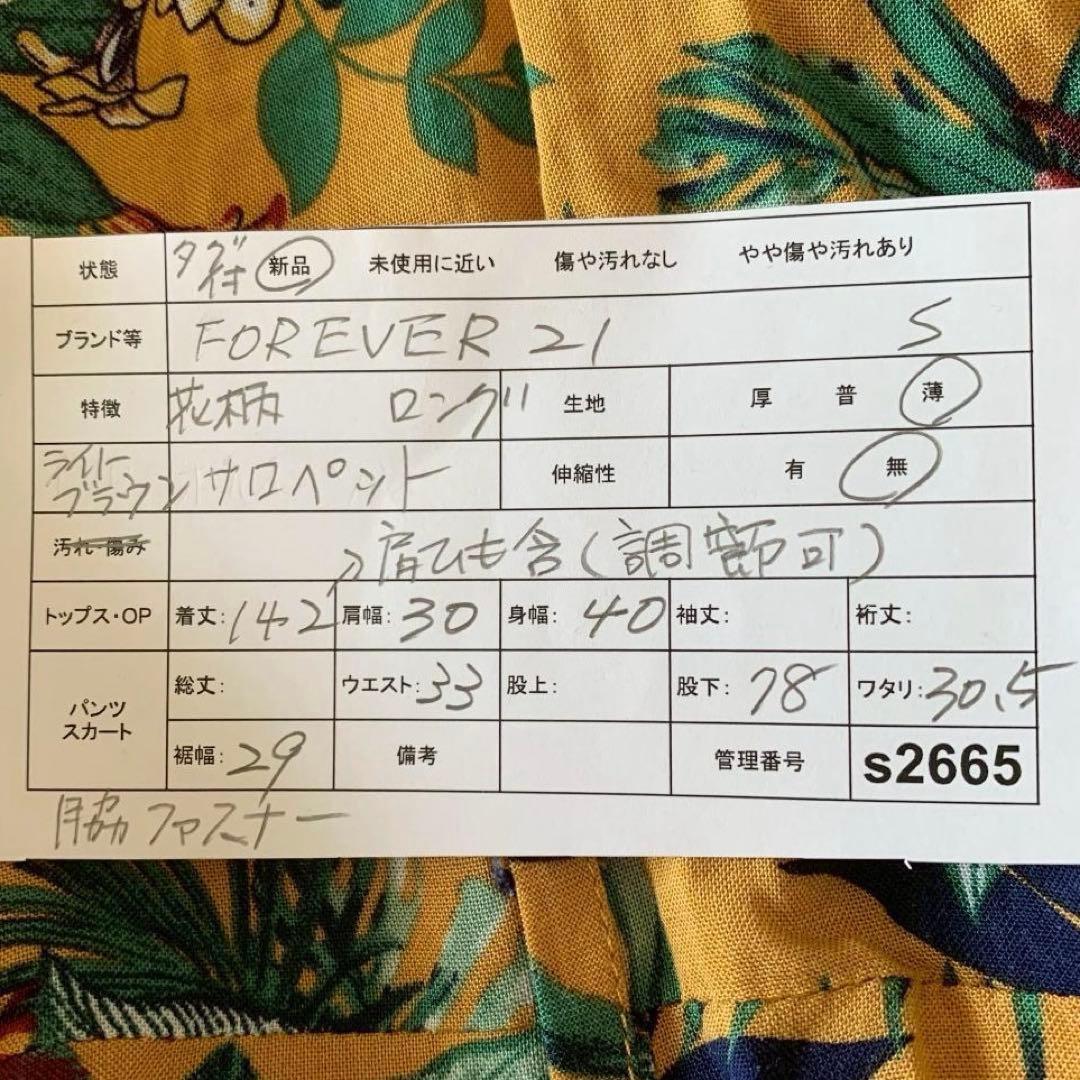 状態 タグ付 新品 未使用に近い 傷や汚れなし やや傷や汚れあり
ブランド等 FOREVER 21 S
特徴 花柄 ロング 生地 厚 普 薄
ライトブラウン サロペット 伸縮性 有 無
汚れ・傷み
→肩ひも含(調節可)
トップス・OP 着丈:142 肩幅:30 身幅:40 袖丈: 裄丈:
パンツ
スカート
総丈: ウエスト:33 股上: 股下:78 ワタリ:30.5
裾幅:29 備考 管理番号 s2665
脇ファスナー